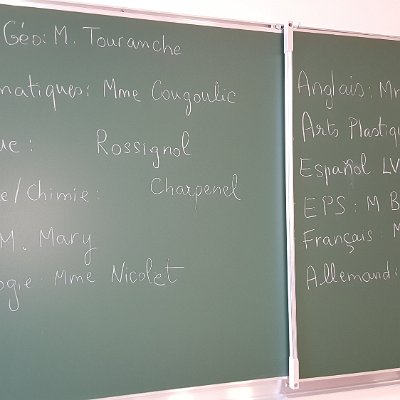 Géo: M. Touranche
matiques: Mme Cougoulic
ue: Rossignol
e/Chimie: Charpenel
M. Mary
ogie: Mme Nicolet
Anglais: Mm
Arts Plastiqu
Español LV
EPS: M B
Français: M
Allemand: